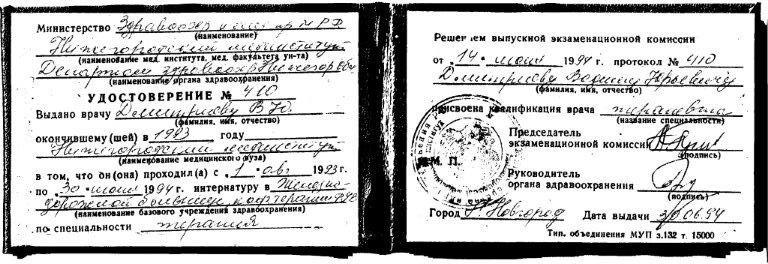 Министерство Здравоохр и мед пр МРФ
(наименование)
Нижегородский мединститут
(наименование мед. института, мед. факультета ун-та)
Департам здравоохр Нижегор
(наименование органа здравоохранения)
УДОСТОВЕРЕНИЕ № 410
Выдано врачу Дмитриеву В Ю.
(фамилия, имя, отчество)
окончившему (шей) в 1993 году
Нижегородский мединститут
(наименование медицинского вуза)
в том, что он (она) проходил (а) с 1 авг 1993г.
по 30 июня 1994 г. интернатуру в Железно-
дорожной больнице
(наименование базового учреждений здравоохранения)
по специальности терапия
Решением выпускной экзаменационной комиссии
от 14 июня 1994 г. протокол № 410
Дмитриеву Вадиму Юрьевичу
(фамилия, имя, отчество)
присвоена квалификация врача терапевта
(название специальности)
Председатель
экзаменационной комиссии
(подпись)
М. П.
Руководитель
органа здравоохранения
(подпись)
Город Н Новгород Дата выдачи 30.06.94
Тип. объединения МУП з.132 т. 15000